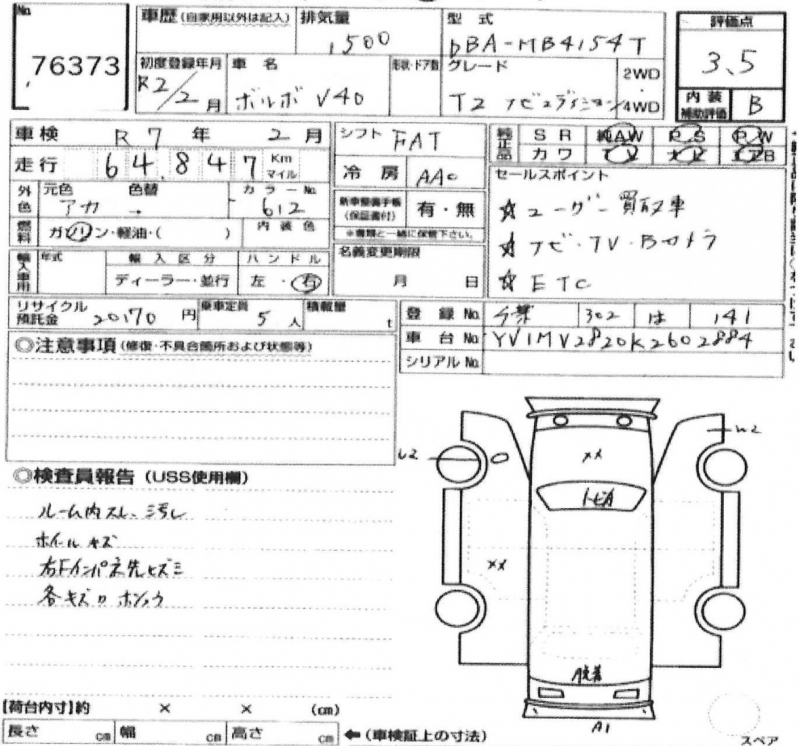 No. 76373
車歴(自家用以外は記入) 排気量 1500 型式 DBA-MB4154T 評価点 3.5
初度登録年月 R2/2月 車名 ボルボ V40 形状・ドア数 グレード T2 ナビエディション 2WD 4WD 内装補助評価 B
車検 R7年2月 シフト FAT 純正品 SR 純AW PS PW
カワ TV ナビ エアB
走行 64,847 Km マイル 冷房 AAC セールスポイント
外色 元色 アカ 色替 → カラーNo. 612 新車整備手帳(保証書付) 有・無
※書類と一緒に保管下さい。
☆ユーザー買取車
燃料 ガソリン・軽油・( ) 内装色 名義変更期限 月 日
☆ナビ・TV・Bカメラ
輸入車用 年式 輸入区分 ディーラー・並行 ハンドル 左・右
☆ETC
リサイクル預託金 20170円 乗車定員 5人 積載量 t
登録No. 302 は 141
車台No. YV1MV2820K2602884
シリアルNo.
◎注意事項(修復・不具合箇所および状態等)
◎検査員報告(USS使用欄)
ルーム内スレ、汚レ
ホイールキズ
右Fインパネ先ヒズミ
各キズ
U2 W2
××
トビA
××
A1
スペア
【荷台内寸】約 × × (cm)
長さ cm 幅 cm 高さ cm ←(車検証上の寸法)